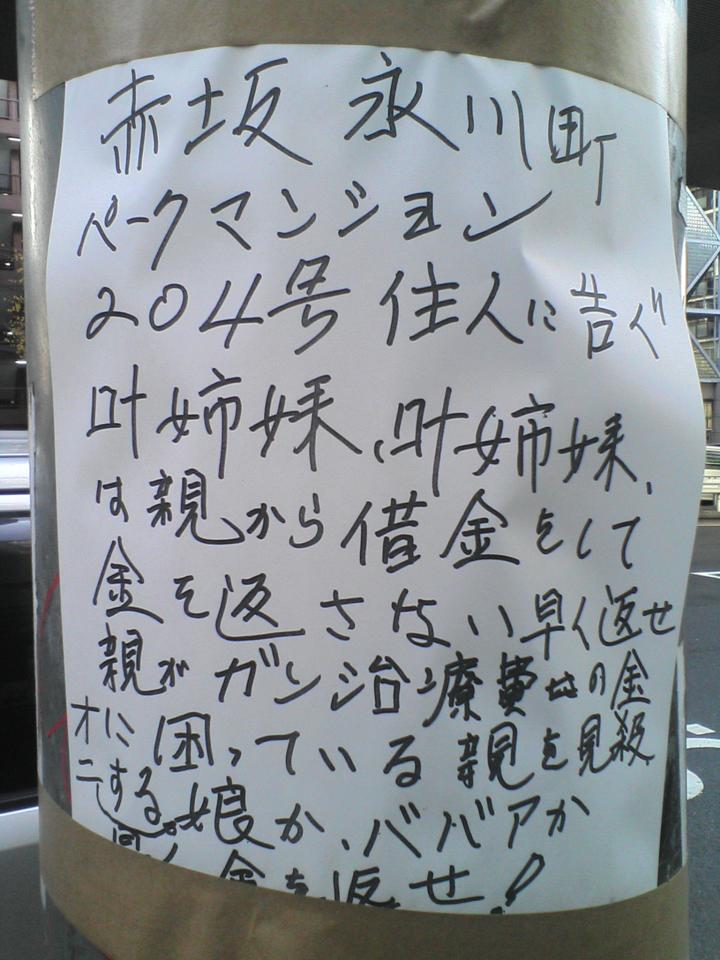 赤坂 氷川町
パークマンション
204号 住人に告ぐ
叶姉妹、叶姉妹、
は親から借金をして
金を返さない早く返せ
親がガン治療費の金
に困っている親を見殺
にする娘か、ババアか
金を返せ!